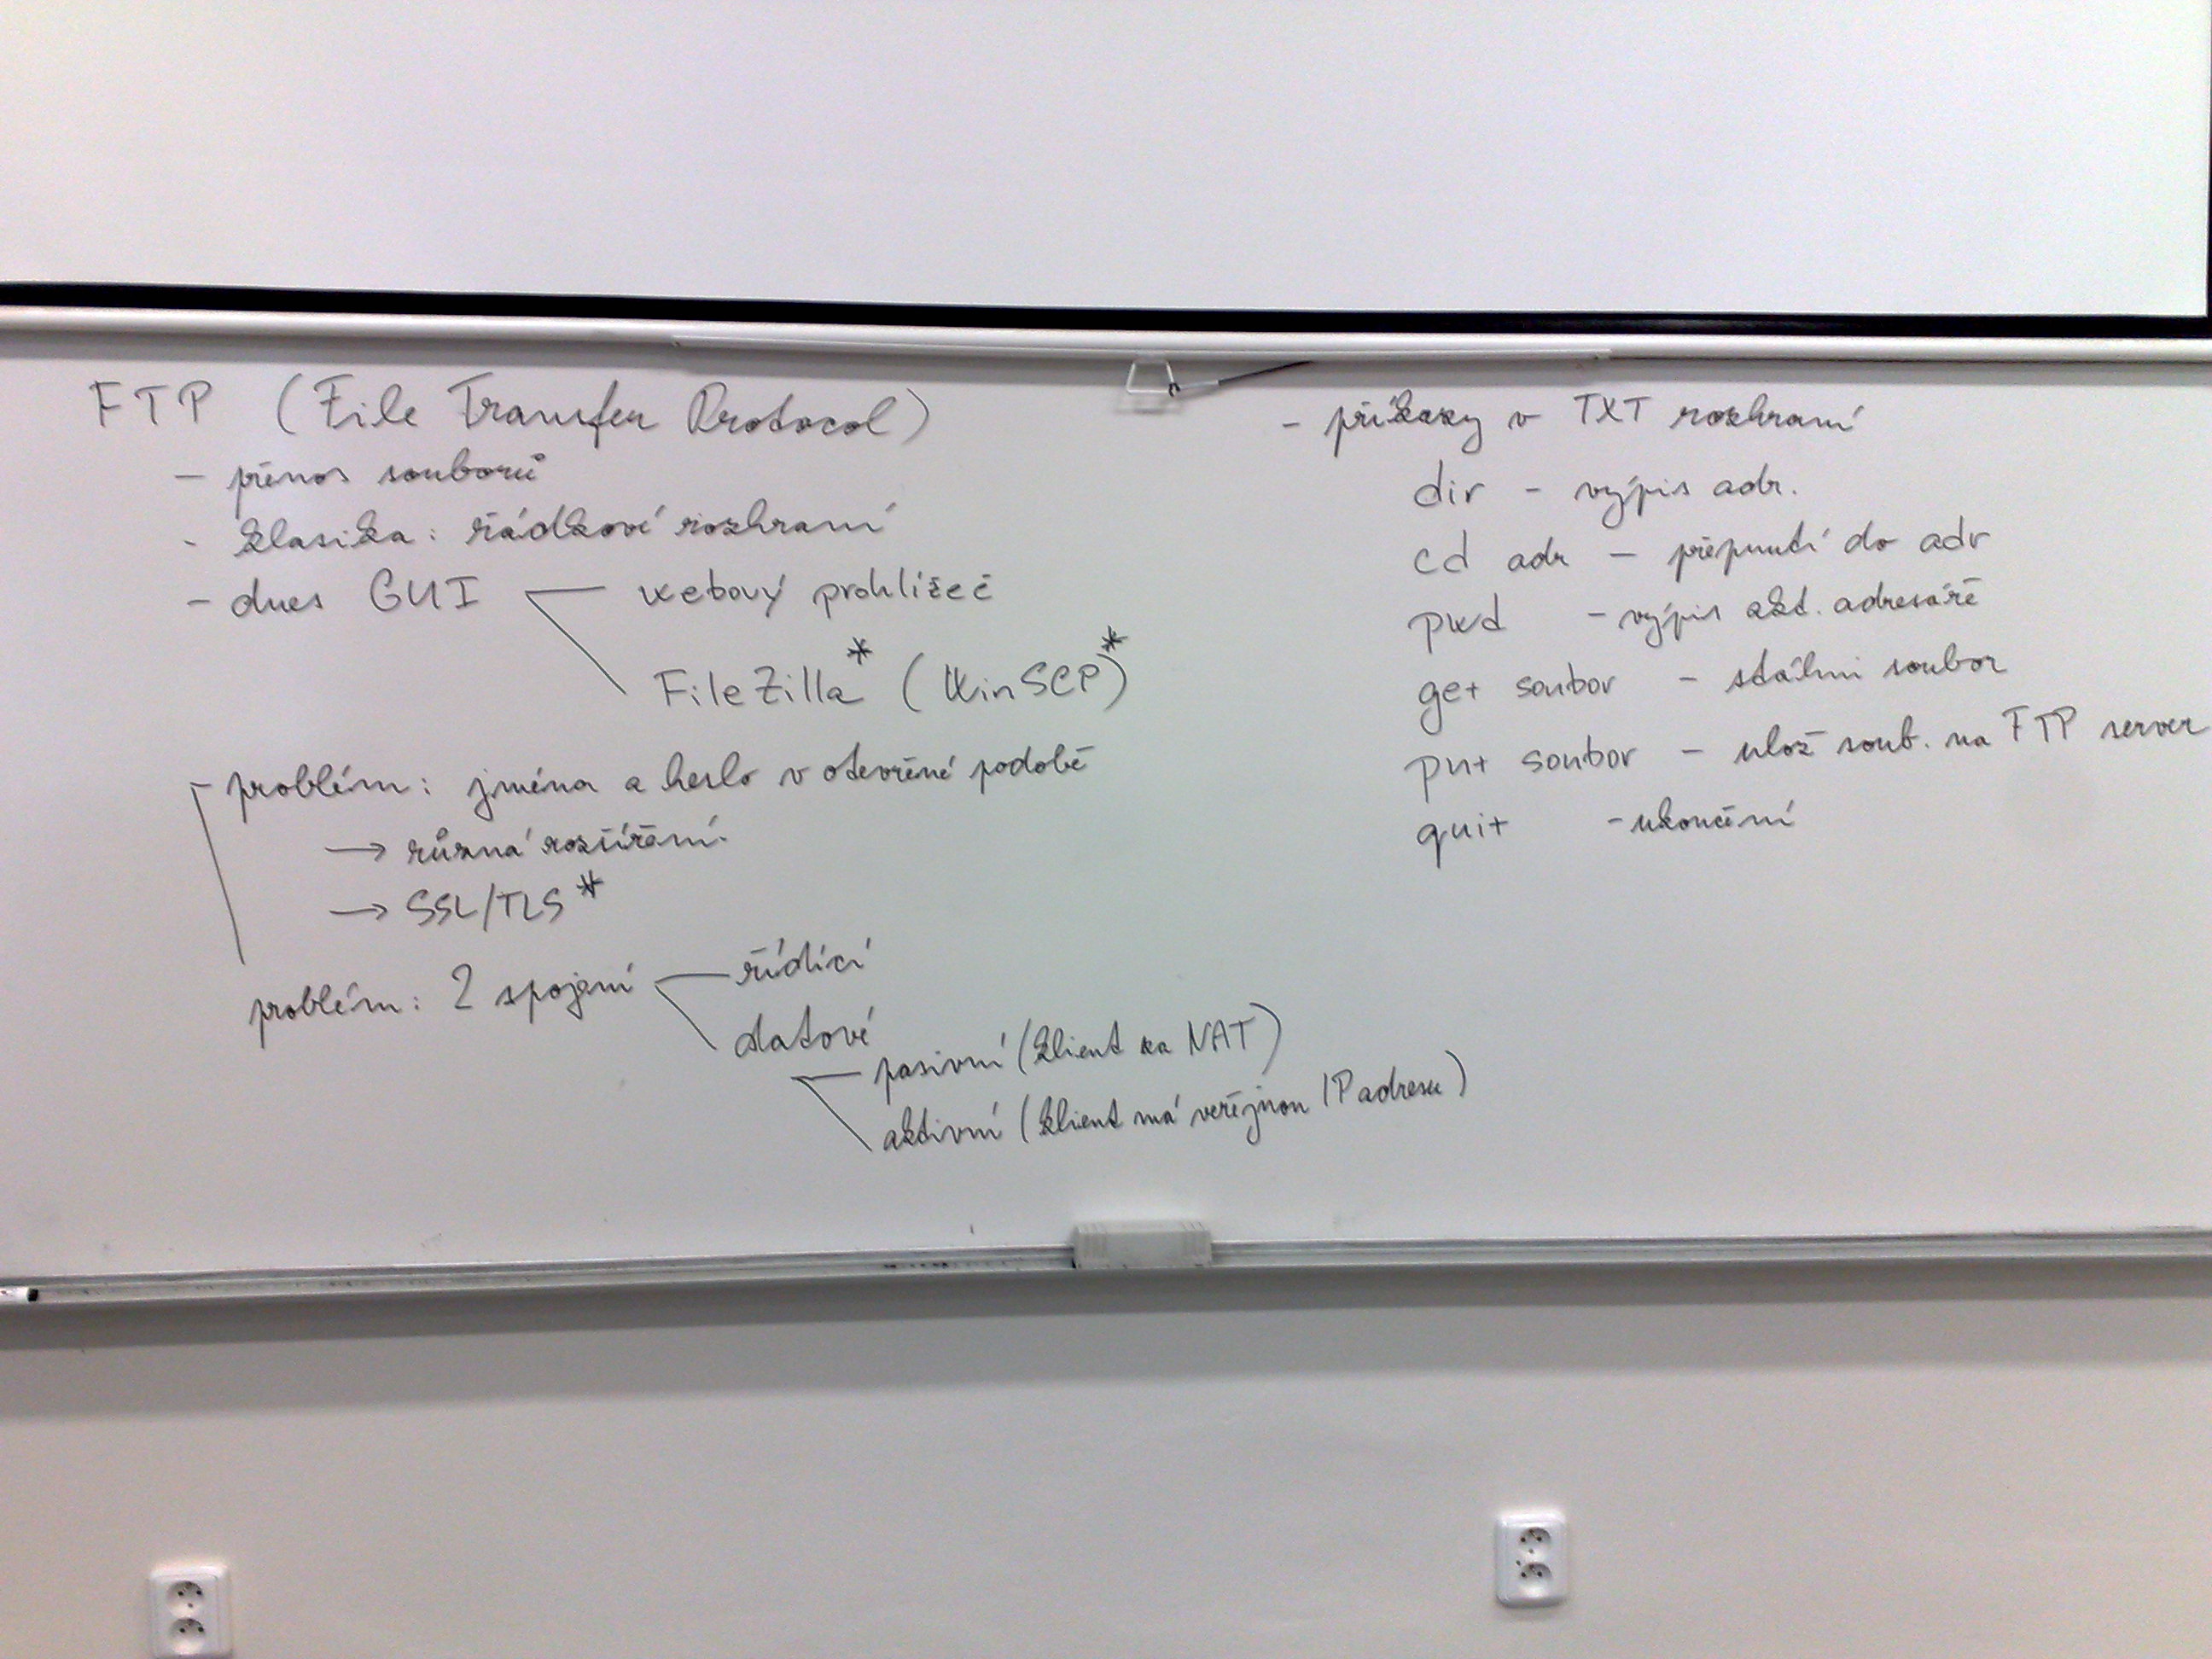 FTP (File Transfer Protocol)
- přenos souborů
- klasika: řádkové rozhraní
- dnes GUI
webový prohlížeč
FileZilla* (WinSCP)*
- problém: jména a heslo v otevřené podobě
→ různá rozšíření.
→ SSL/TLS*
problém: 2 spojení
řídící
datové
pasivní (klient za NAT)
aktivní (klient má veřejnou IP adresu)
- příkazy v TXT rozhraní
dir - výpis adr.
cd adr - přepnutí do adr
pwd - výpis akt. adresáře
get soubor - stáhni soubor
put soubor - ulož soub. na FTP server
quit - ukončení